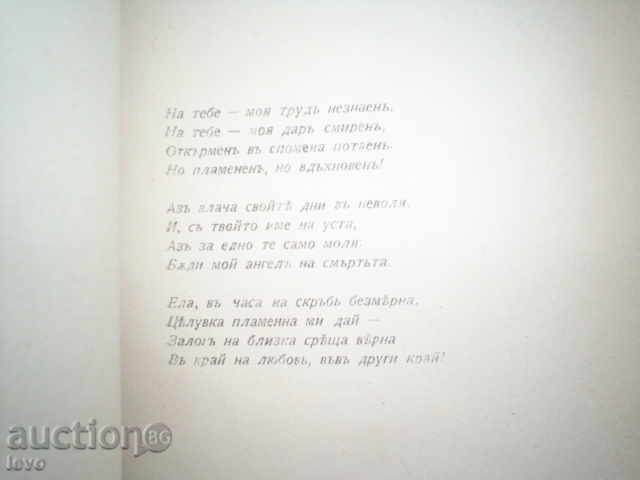 На тебе — моя трудъ незнаенъ.
На тебе — моя даръ смиренъ,
Откърменъ въ спомена потаенъ.
Но пламененъ, но вдъхновенъ!
Азъ влача свойтѣ дни въ неволя.
И, съ твойто име на уста,
Азъ за едно те само моля:
Бѫди мой ангелъ на смъртьта.
Ела, въ часа на скръбь безмѣрна,
Цѣлувка пламенна ми дай —
Залогъ на близка срѣща вѣрна
Въ край на любовь, въвъ други край!
auction BG
levo